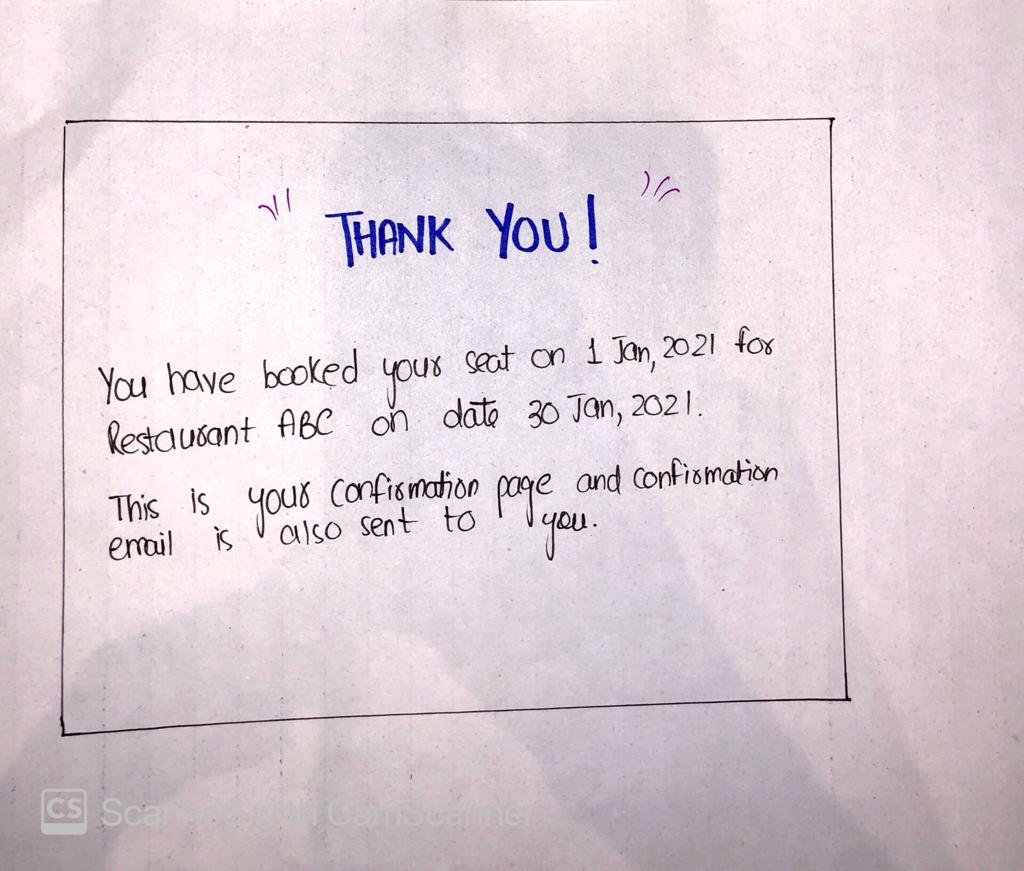 THANK YOU!
You have booked your seat on 1 Jan, 2021 for
Restaurant ABC on date 30 Jan, 2021.
This is your confirmation page and confirmation
email is also sent to you.
CS Scanned with CamScanner